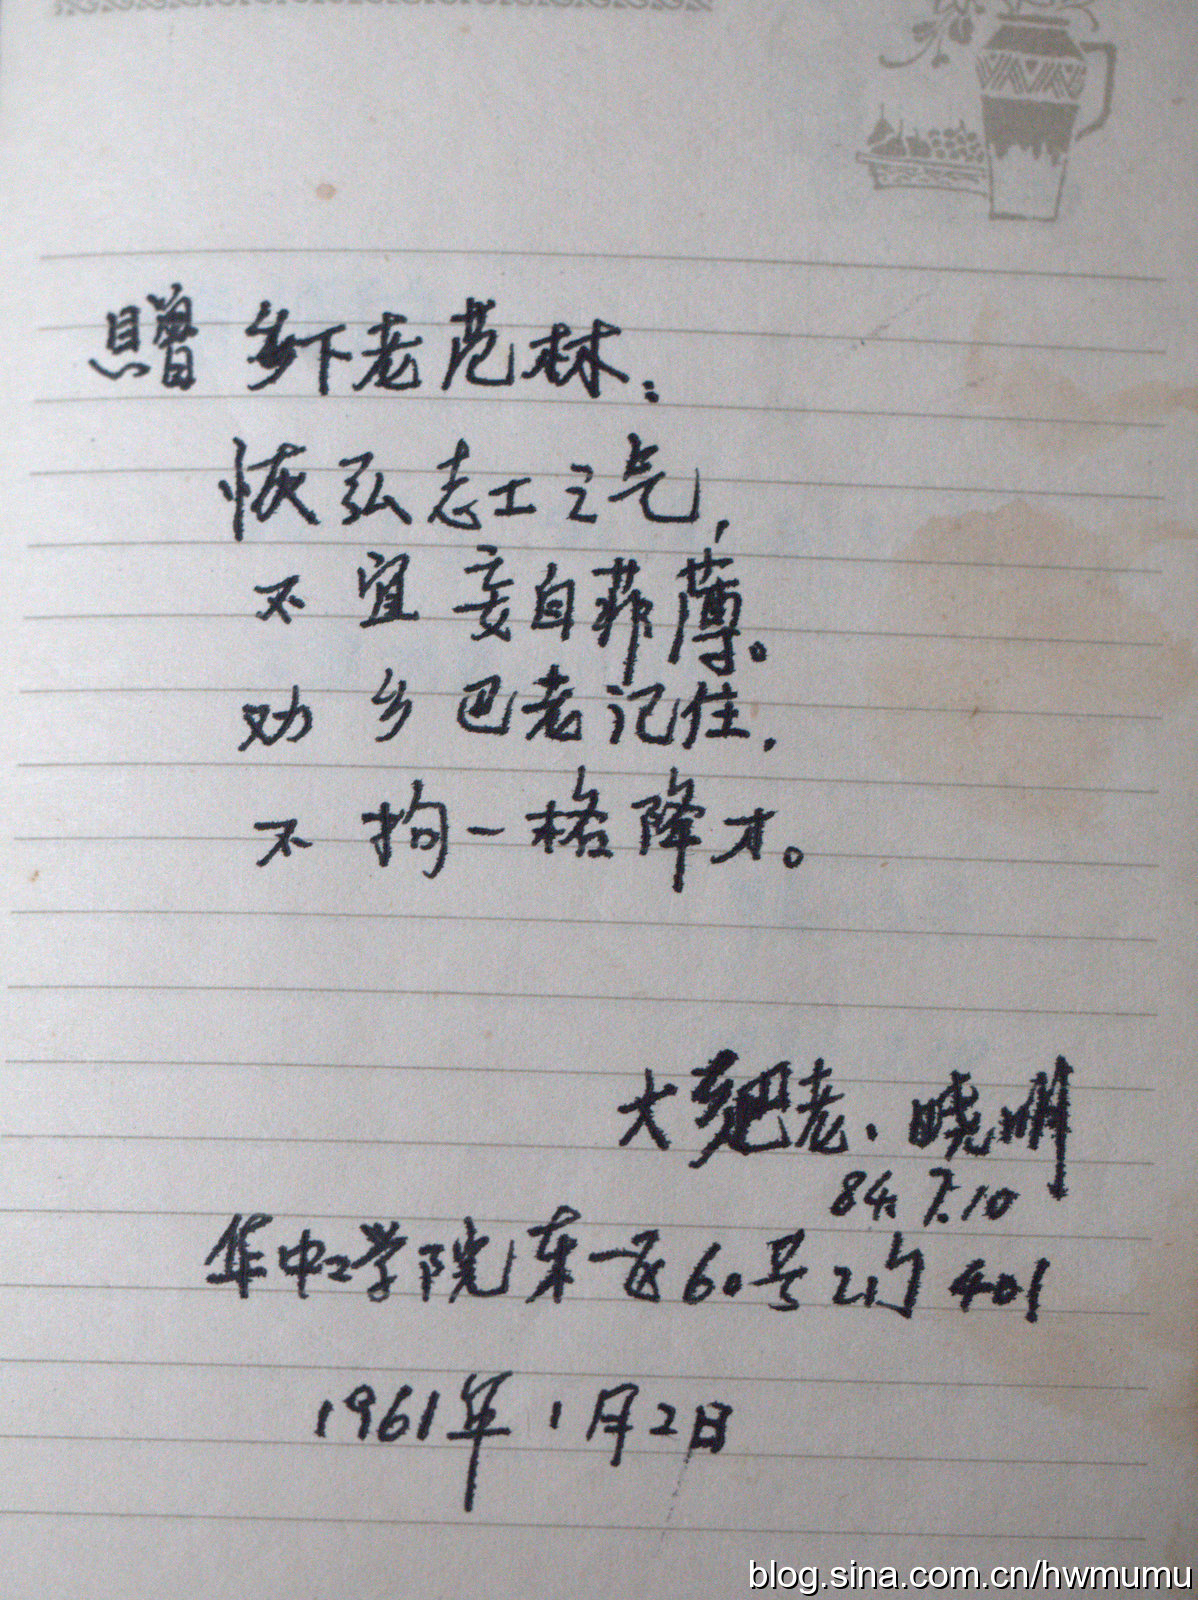 赠 乡下老范林：
恢弘志士之气，
不宜妄自菲薄。
劝乡巴老记住，
不拘一格降才。
大乡巴老、晓明
84.7.10
华中工学院东一区60号2门401
1961年1月2日
blog.sina.com.cn/hwmumu